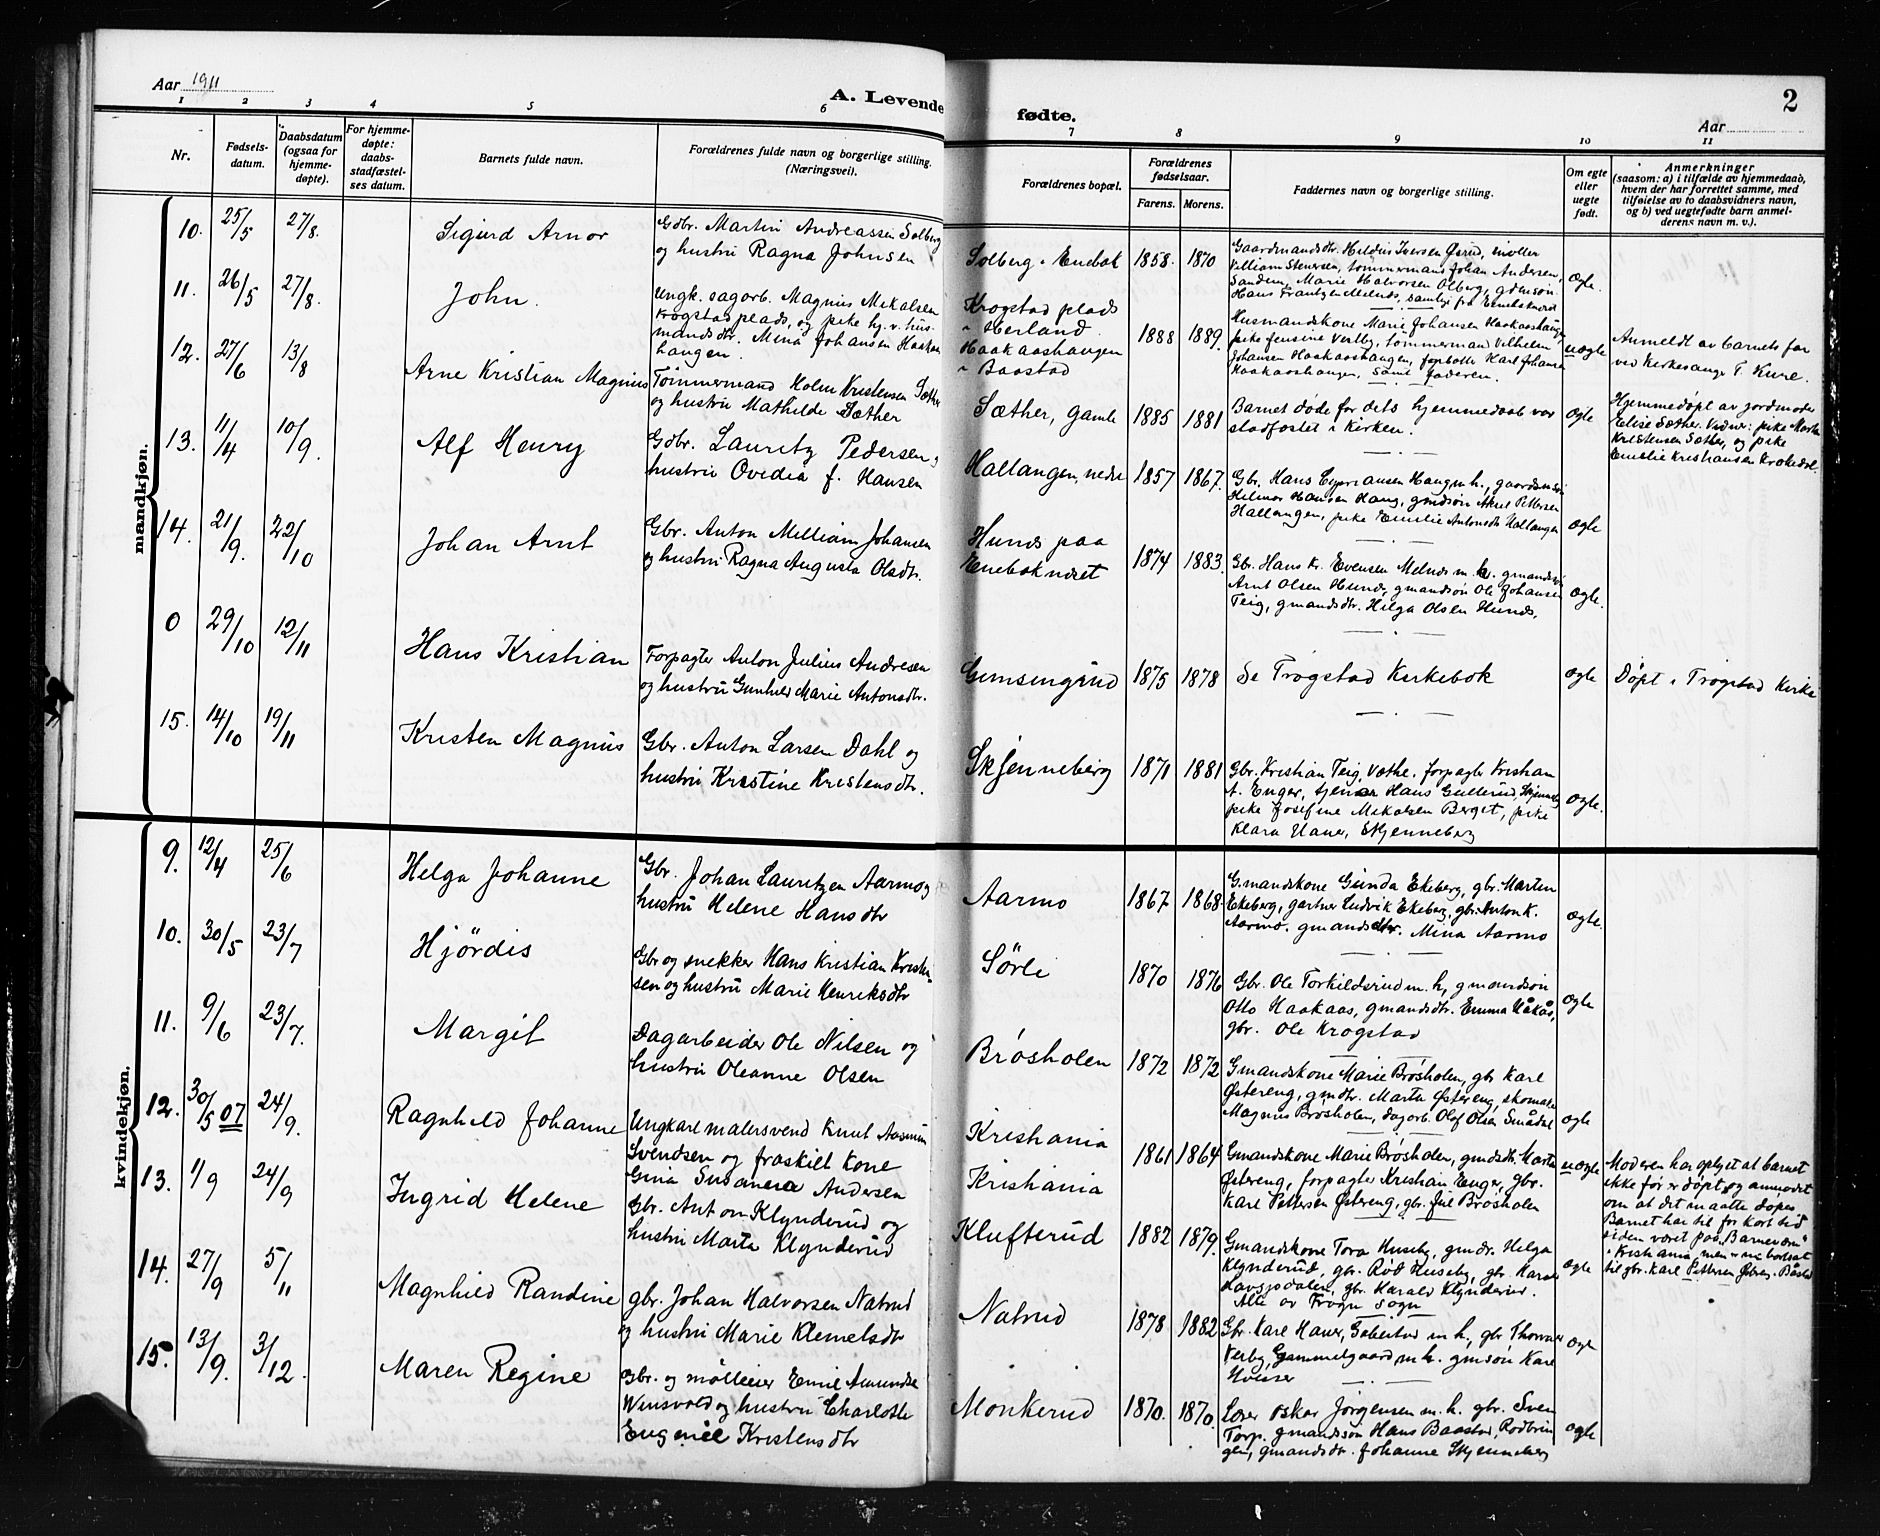 Aar 1911
A. Levende fødte.
2
Aar
1 2 3 4 5 6 7 8 9 10 11
Nr.
Fødselsdatum.
Daabsdatum (ogsaa for hjemmedøpte).
For hjemmedøpte: daabsstadfæstelses datum.
Barnets fulde navn.
Forældrenes fulde navn og borgerlige stilling. (Næringsvei).
Forældrenes bopæl.
Forældrenes fødselsaar.
Farens. Morens.
Faddernes navn og borgerlige stilling.
Om egte eller uegte født.
Anmerkninger
(saasom: a) i tilfælde av hjemmedaab, hvem der har forrettet samme, med tilføielse av to daabsvidners navn, og b) ved uegtefødte barn anmelderens navn m. v.).
mandkjøn.
10. 25/5 27/8. Sigurd Arnor
Gdbr. Martin Andreassen Solberg
og hustru Ragna Johnsen
Solberg i Enebak 1858. 1870
Hans Frantzen Melnes, samtlige fra
ægte.
11. 26/5 27/8. John.
Ungk. sagarb. Magnus Mikalsen
Krogstad plads, og pike hj. v. hus-
mandsdtr. Mina Johansen Haakaas-
hangen.
Krogstad plads
i Herland
Haakaashangen
i Baastad
1888 1889.
Husmandskone Marie Johansen Haakaashangen
pike Jensine Verby, tømmermand Vilhelm
Johansen Haakaashangen, Karl Johansen
Haakaashangen, samt faderen.
uægte
Anmeldt av barnets far
ved kirkesanger T. Kure.
12. 27/6 13/8 Arne Kristian Magnus
Tømmermand Holm Kristensen Sæther
og hustru Mathilde Sæther
Sæther, gamle 1885 1881
Barnet døde før dets hjemmedaab var
stadfæstet i kirken.
ægte
Hjemmedøpt av jordmoder
Elise Sæther. Vidner: pike Martha
Kristensen Sæther, og pike
Emelie Kristiansen Krokedal.
13. 11/4 10/9. Alf Henry
Gdbr. Lauritz Pedersen og
hustru Ovedia f. Hansen
Hallangen, nedre 1857 1867.
Gbr. Hans Cypriansen Haug m. h., gaardmsøn
Helmer Hansen Haug, gmdsøn Aksel Pettersen
Hallangen, pike Emelie Antonsdtr. Hallangen
ægte
14. 21/9. 22/10 Johan Arnt
Gbr. Anton Milliam Johansen
og hustru Ragna Augusta Olsdtr.
Hunds paa
Enebakneset 1874 1883.
Gb. Hans Kr. Evensen Melnes m. h. gmandssøn
Arnt Olsen Hunds, gmandsøn Ole Johansen
Teig, gmandsdtr. Helga Olsen Hunds.
ægte.
0 29/10 12/11 Hans Kristian
Forpagter Anton Julius Andresen
og hustru Gunhild Marie Antonsdtr.
Gimsengrud 1875 1878
Se Trøgstad Kirkebok
ægte
Døpt i Trøgstad Kirke
15. 14/10 19/11 Kristen Magnus
Gbr. Anton Larsen Dahl og
hustru Kristine Kristensdtr.
Skjenneberg 1871 1881
Gbr. Kristian Teig, Vathe, forpagter Kristian
A. Enger, tjener Hans Gullerud, Skjenneberg
pike Josefine Mikalsen Berget, pike
Klara Hauer, Skjenneberg
ægte.
kvindekjøn.
9. 12/4 25/6 Helga Johanne
Gbr. Johan Lauritzen Aarmo og
hustru Helene Hansdtr
Aarmo 1867 1868.
Gmandskone Gunda Ekeberg, gbr. Marten
Ekeberg, gartner Ludvik Ekeberg, gbr. Anton K.
Aarmo. gmandsdtr. Mina Aarmo
ægte.
10. 30/5 23/7 Hjördis
Gbr og snekker Hans Kristian Kristian-
sen og hustru Marie Henriksdtr
Sörli 1870 1876
Gbr. Ole Torkildsrud m. h, gmandsøn
Otto Haakaas, gmandsdtr. Emma Håkås,
gbr. Ole Krogstad
ægte
11. 9/6 23/7. Margit
Dagarbeider Ole Nilsen og
hustru Oleanne Olsen
Brøsholen 1872 1872
Gmandskone Marie Brøsholen, gbr Karl
Østereng, gmdtr. Marta Østereng, skomaker
Magnus Brøsholen, dagarb. Olof Olsen Smådal
ægte
12. 30/5 07 24/9. Ragnhild Johanne
Ungkarl malersvend Knut Aasmun
Svendsen og fraskilt kone
Gina Susanna Andersen
Kristiania
Kristiania
1861 1864
Gmandskone Marie Brøsholen, gmdsdtr. Marta
Østereng, forpagter Kristian Enger, gbr.
Karl Pettersen Østereng, gbr. Juel Brøsholen
uægte
Moderen har oplyst at barnet
ikke før er døpt, og anmodet
om at det maatte døpes.
Barnet har til for kort tid
siden været paa "Barnevern"
i Kristiania, men nu bortsat
til gbr. Karl Pettersen Østreng, Båstad
13. 1/9 24/9 Ingrid Helene
Gbr. Anton Klynderud og
hustru Marta Klynderud
Klufterud 1882 1879.
Gmandskone Tora Huseby, gmdtr. Helga
Klynderud, gbr. Rød Huseby, gbr. Harald
gbr. Harald Klynderud.
Alle av Frogn sogn
ægte
14. 27/9 5/11 Magnhild Randine
gbr. Johan Halvorsen Natrud
og hustru Marie Klemetsdtr
Natrud 1878 1882
Gbr. Karl Hauer, m. h., gbr Thorvald
Verby, Gammelgaard m. h. gmsøn Karl
ægte
15. 13/9. 3/12. Maren Regine
Gbr. og mølleier Emil Amundsen
Winsvold og hustru Charlotte
Eugenie Kristensdtr
Monkerud 1870. 1870.
Lærer Oskar Jörgensen m. h. gbr. Sven
Torp. gmandssøn Hans Baastad, Rødbrin-
gen, gmandsdtr. Johanne Skjenneberg
ægte